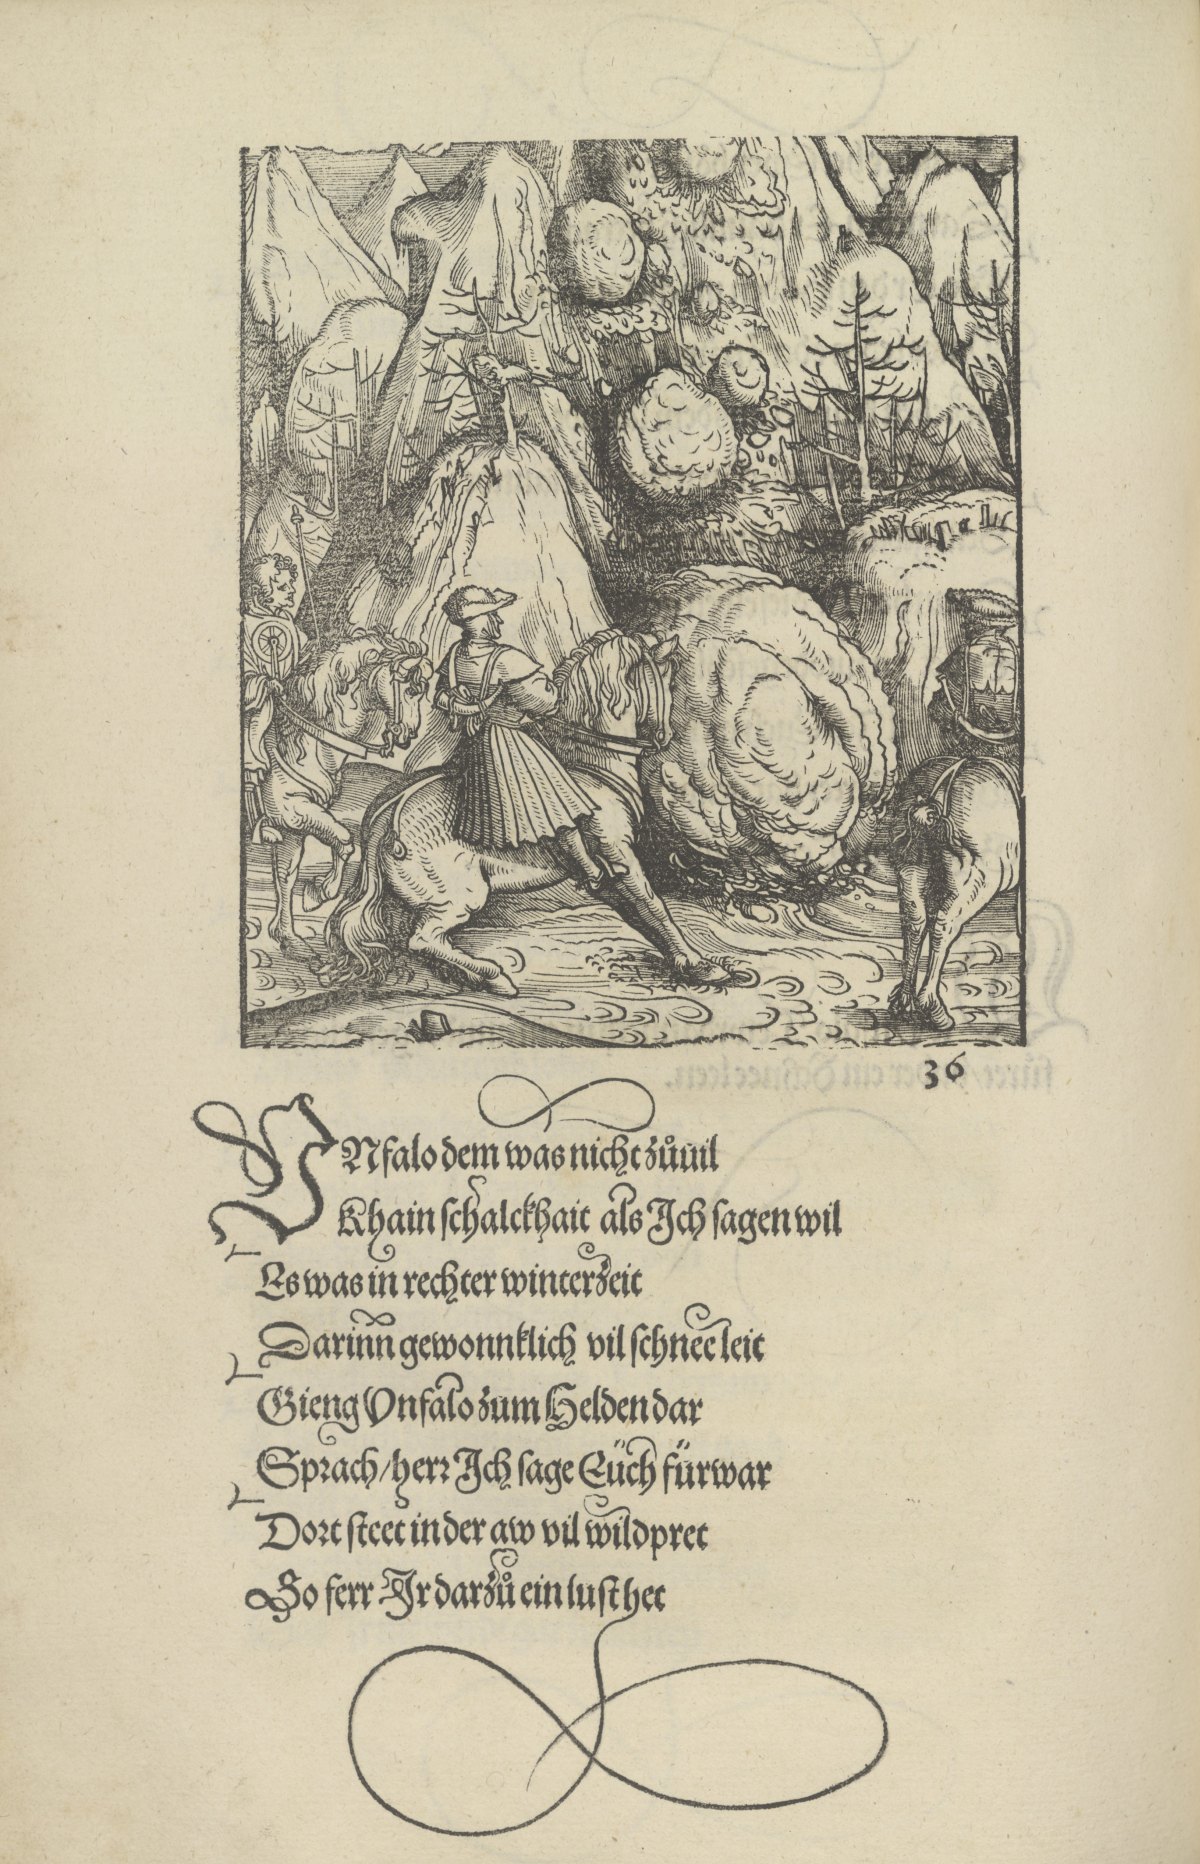 36
VNfalo dem was nicht zůuil
Khain schalckhait als Ich sagen wil
Es was in rechter winterzeit
Darinn gewonnklich vil schnee leit
Gieng Vnfalo zum Helden dar
Sprach/herr Ich sage Eüch fürwar
Dort steet in der aw vil wildpret
So ferr Ir darzů ein lust het